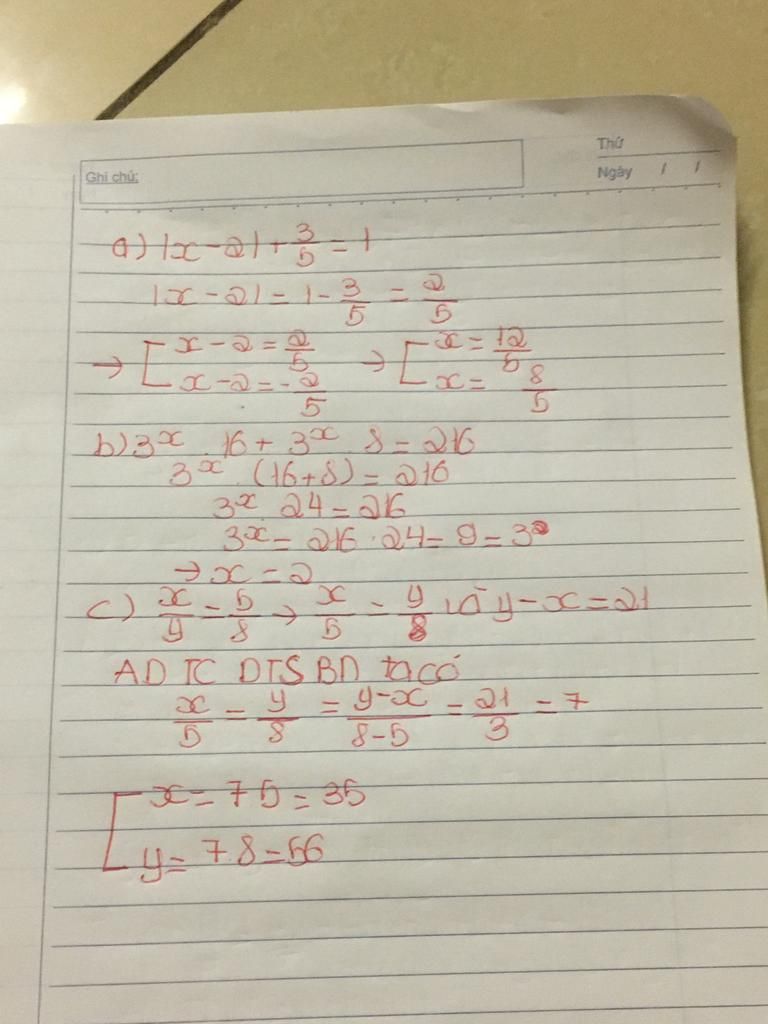 Thứ
Ghi chú:
Ngày / /
a) |x - 2| + 3/5 = 1
|x - 2| = 1 - 3/5 = 2/5
→ [ x - 2 = 2/5 → [ x = 12/5
x - 2 = -2/5 x = 8/5
b) 3^x . 16 + 3^x 8 = 216
3^x . (16+8) = 216
3^x 24 = 216
3^x = 216 . 24 = 9 = 3^2
→ x = 2
c) x/y = 5/8 → x/5 = y/8 và y - x = 21
AD TC DTSBN ta có
x/5 = y/8 = y-x/8-5 = 21/3 = 7
[ x = 7 5 = 35
y = 7.8 = 56